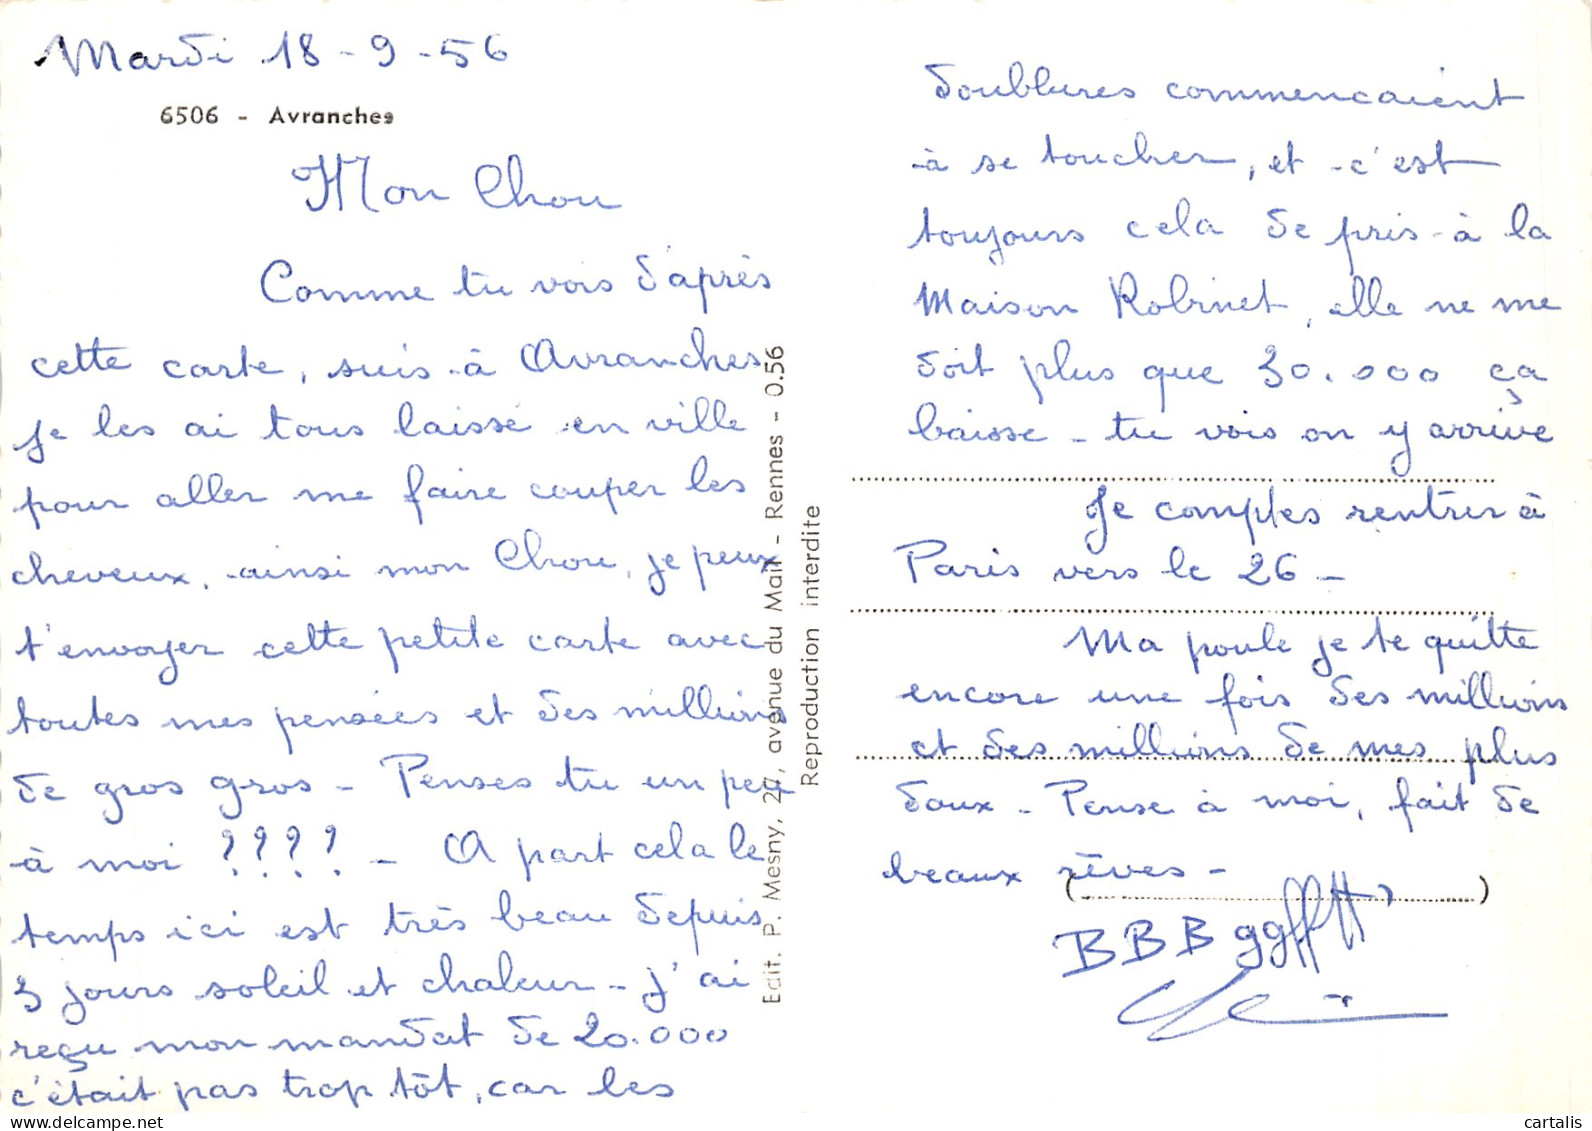 Mardi 18-9-56
6506 - Avranches
Mon Chou
Comme tu vois d'après
cette carte, suis à Avranches
je les ai tous laissé en ville
pour aller me faire couper les
cheveux, ainsi mon Chou, je peux
t'envoyer cette petite carte avec
toutes mes pensées et des millions
de gros gros - Penses tu un peu
à moi ???? - A part cela le
temps ici est très beau depuis
3 jours soleil et chaleur - j'ai
reçu mon mandat de 20.000
c'était pas trop tôt, car les
Edit. P. Mesny, 27, avenue du Mail - Rennes - 0.56
Reproduction interdite
doublures commencaient
à se toucher, et c'est
toujours cela de pris à la
Maison Robinet, elle ne me
doit plus que 30.000 ça
baisse - tu vois on y arrive
Je comptes rentrer à
Paris vers le 26 -
Ma poule je te quitte
encore une fois des millions
et des millions de mes plus
doux - Pense à moi, fait de
beaux rêves -
BBB ggffft
cartalis.com